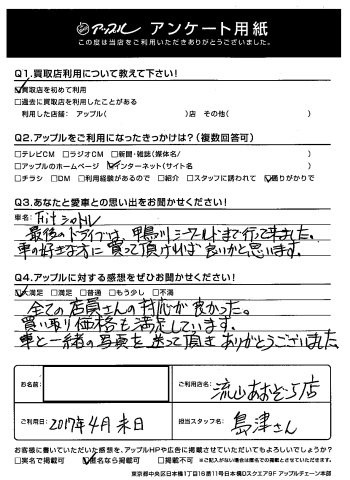 アップル アンケート用紙
この度は当店をご利用いただきありがとうございました。
Q1.買取店利用について教えて下さい!
☑買取店を初めて利用
□過去に買取店を利用したことがある
利用した店舗: アップル( )店 その他( )
Q2.アップルをご利用になったきっかけは?(複数回答可)
□テレビCM □ラジオCM □新聞・雑誌(媒体名/ )
□アップルのホームページ ☑インターネット(サイト名 )
□チラシ □DM □利用経験があるので □紹介 □スタッフに誘われて ☑通りがかりで
Q3.あなたと愛車との思い出をお聞かせください!
車名: Fitシャトル
最後のドライブでは、鴨川シーワールドまで行って来ました。
車の好きな方に買って頂ければ良いかと思います。
Q4.アップルに対する感想をぜひお聞かせください!
☑大満足 □満足 □普通 □もう少し □不満
全ての店員さんの対応が良かった。
買い取り価格も満足しています。
車と一緒の写真を送って頂きありがとうございました
お名前:
ご利用店名: 流山おおぞら店
ご利用日: 2017年4月末日
担当スタッフ名: 島津さん
お客様に書いていただいた感想を、アップルHPや広告に掲載させていただいてもよろしいでしょうか?
□実名で掲載可 ☑匿名なら掲載可 □掲載不可 ※ご記入がない場合は匿名での掲載とさせていただきます。
東京都中央区日本橋1丁目16番11号日本橋Dスクエア9F アップルチェーン本部